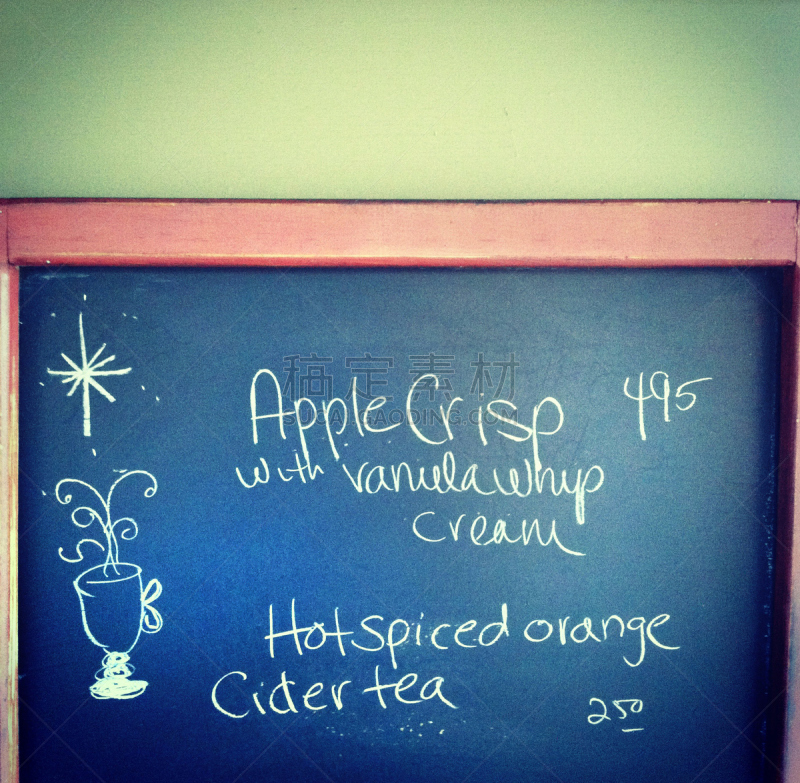 稿定素材
SUCAI.GAODING.COM
Apple Crisp 495
with vanilla whip
cream
Hot spiced orange
Cider tea
250